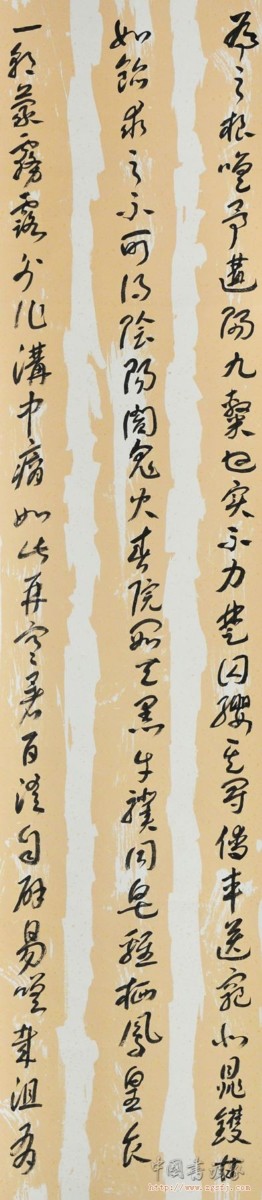 為之根嗟予遘陽九隸也实不力楚囚纓其冠傳車送窮北鼎鑊甘
如飴求之不可得陰陽闐鬼火春院閟天黑牛驥同皂雞栖鳳皇食
一朝蒙霧露分作溝中瘠如此再寒暑百沴自辟易嗟哉沮為